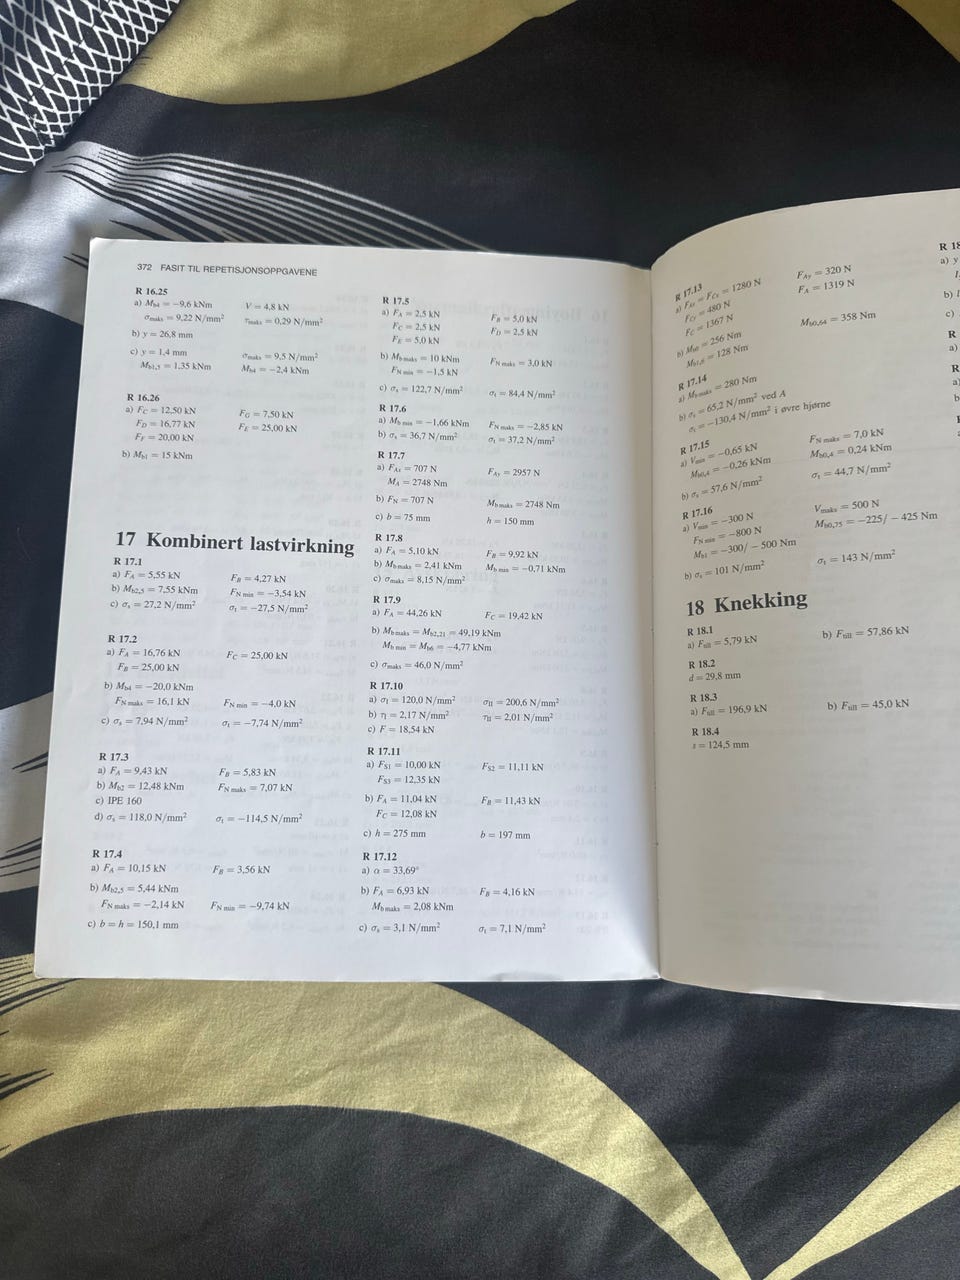 372 FASIT TIL REPETISJONSOPPGAVENE
R 16.25
a) Mb4 = −9,6 kNm V = 4,8 kN
σmaks = 9,22 N/mm² τmaks = 0,29 N/mm²
b) y = 26,8 mm
c) y = 1,4 mm σmaks = 9,5 N/mm²
Mb1,5 = 1,35 kNm Mb4 = −2,4 kNm
R 16.26
a) FC = 12,50 kN FG = 7,50 kN
FD = 16,77 kN FE = 25,00 kN
FF = 20,00 kN
b) Mb1 = 15 kNm
17 Kombinert lastvirkning
R 17.1
a) FA = 5,55 kN FB = 4,27 kN
b) Mb2,5 = 7,55 kNm FN min = −3,54 kN
c) σs = 27,2 N/mm² σt = −27,5 N/mm²
R 17.2
a) FA = 16,76 kN FC = 25,00 kN
FB = 25,00 kN
b) Mb4 = −20,0 kNm
FN maks = 16,1 kN FN min = −4,0 kN
c) σs = 7,94 N/mm² σt = −7,74 N/mm²
R 17.3
a) FA = 9,43 kN FB = 5,83 kN
b) Mb2 = 12,48 kNm FN maks = 7,07 kN
c) IPE 160
d) σs = 118,0 N/mm² σt = −114,5 N/mm²
R 17.4
a) FA = 10,15 kN FB = 3,56 kN
b) Mb2,5 = 5,44 kNm
FN maks = −2,14 kN FN min = −9,74 kN
c) b = h = 150,1 mm
R 17.5
a) FA = 2,5 kN FB = 5,0 kN
FC = 2,5 kN FD = 2,5 kN
FE = 5,0 kN
b) Mb maks = 10 kNm FN maks = 3,0 kN
FN min = −1,5 kN
c) σs = 122,7 N/mm² σt = 84,4 N/mm²
R 17.6
a) Mb min = −1,66 kNm FN maks = −2,85 kN
b) σs = 36,7 N/mm² σt = 37,2 N/mm²
R 17.7
a) FAx = 707 N FAy = 2957 N
MA = 2748 Nm
b) FN = 707 N Mb maks = 2748 Nm
c) b = 75 mm h = 150 mm
R 17.8
a) FA = 5,10 kN FB = 9,92 kN
b) Mb maks = 2,41 kNm Mb min = −0,71 kNm
c) σmaks = 8,15 N/mm²
R 17.9
a) FA = 44,26 kN FC = 19,42 kN
b) Mb maks = Mb2,21 = 49,19 kNm
Mb min = Mb6 = −4,77 kNm
c) σmaks = 46,0 N/mm²
R 17.10
a) σI = 120,0 N/mm² σII = 200,6 N/mm²
b) τI = 2,17 N/mm² τII = 2,01 N/mm²
c) F = 18,54 kN
R 17.11
a) FS1 = 10,00 kN FS2 = 11,11 kN
FS3 = 12,35 kN
b) FA = 11,04 kN FB = 11,43 kN
FC = 12,08 kN
c) h = 275 mm b = 197 mm
R 17.12
a) α = 33,69°
b) FA = 6,93 kN FB = 4,16 kN
Mb maks = 2,08 kNm
c) σs = 3,1 N/mm² σt = 7,1 N/mm²
R 17.13
a) FAx = FCx = 1280 N FAy = 320 N
FCy = 480 N FA = 1319 N
FC = 1367 N
b) Mb0 = 256 Nm Mb0,64 = 358 Nm
Mb1,6 = 128 Nm
R 17.14
a) Mb maks = 280 Nm
b) σs = 65,2 N/mm² ved A
σt = −130,4 N/mm² i øvre hjørne
R 17.15
a) Vmin = −0,65 kN FN maks = 7,0 kN
Mb0,4 = −0,26 kNm Mb0,4 = 0,24 kNm
b) σs = 57,6 N/mm² σt = 44,7 N/mm²
R 17.16
a) Vmin = −300 N Vmaks = 500 N
FN min = −800 N Mb0,75 = −225/ − 425 Nm
Mb1 = −300/ − 500 Nm
b) σs = 101 N/mm² σt = 143 N/mm²
18 Knekking
R 18.1
a) Ftill = 5,79 kN b) Ftill = 57,86 kN
R 18.2
d = 29,8 mm
R 18.3
a) Ftill = 196,9 kN b) Ftill = 45,0 kN
R 18.4
s = 124,5 mm
R 18
a) y
b)
c)
R
a)
a)
b)